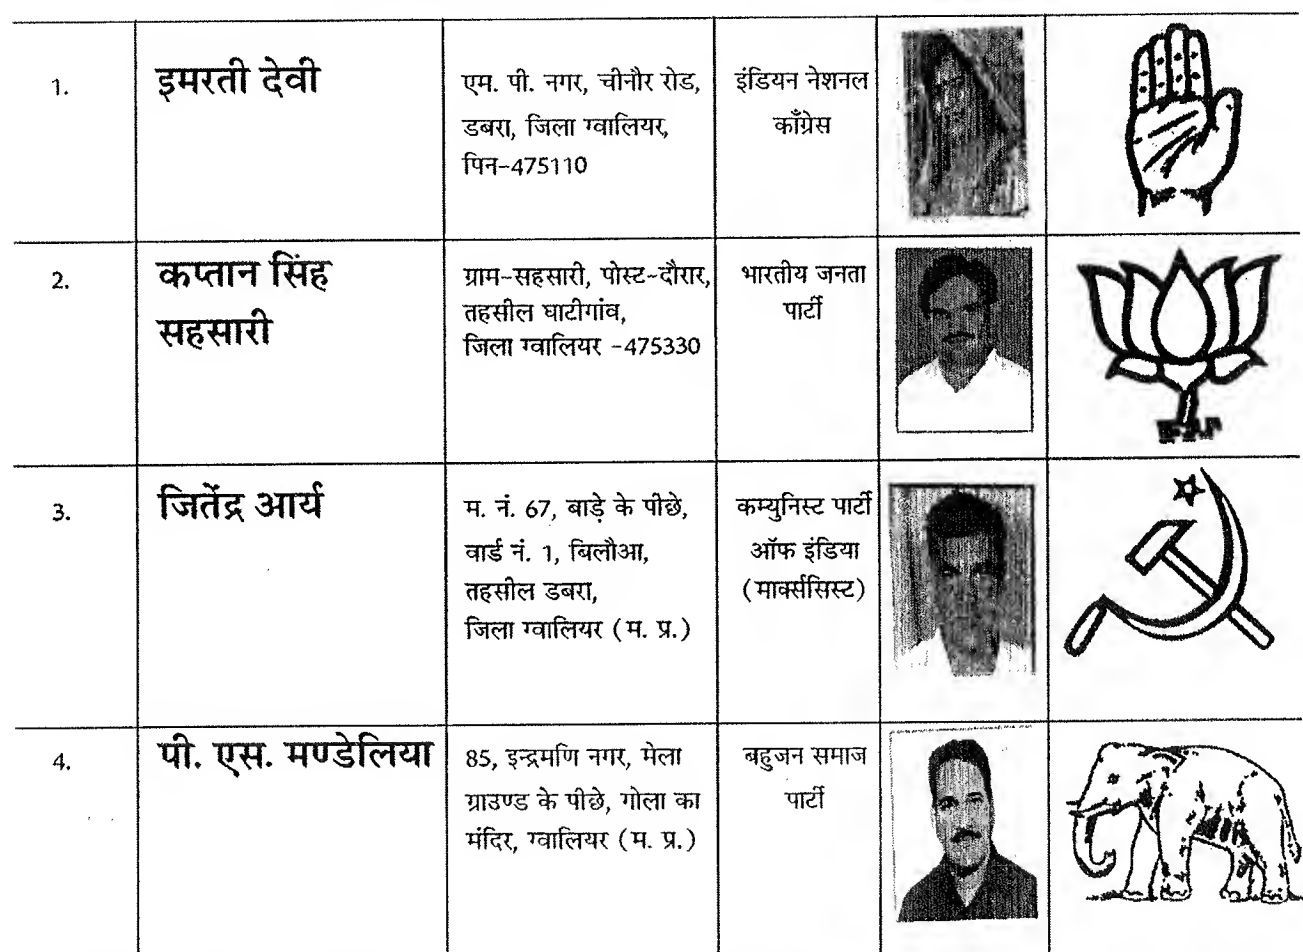 1.
इमरती देवी
एम. पी. नगर, चीनौर रोड,
डबरा, जिला ग्वालियर,
पिन-475110
इंडियन नेशनल
काँग्रेस
2.
कप्तान सिंह
सहसारी
ग्राम-सहसारी, पोस्ट-दौरार,
तहसील घाटीगांव,
जिला ग्वालियर -475330
भारतीय जनता
पार्टी
3.
जितेंद्र आर्य
म. नं. 67, बाड़े के पीछे,
वार्ड नं. 1, बिलौआ,
तहसील डबरा,
जिला ग्वालियर (म. प्र.)
कम्युनिस्ट पार्टी
ऑफ इंडिया
(मार्क्ससिस्ट)
4.
पी. एस. मण्डेलिया
85, इन्द्रमणि नगर, मेला
ग्राउण्ड के पीछे, गोला का
मंदिर, ग्वालियर (म. प्र.)
बहुजन समाज
पार्टी